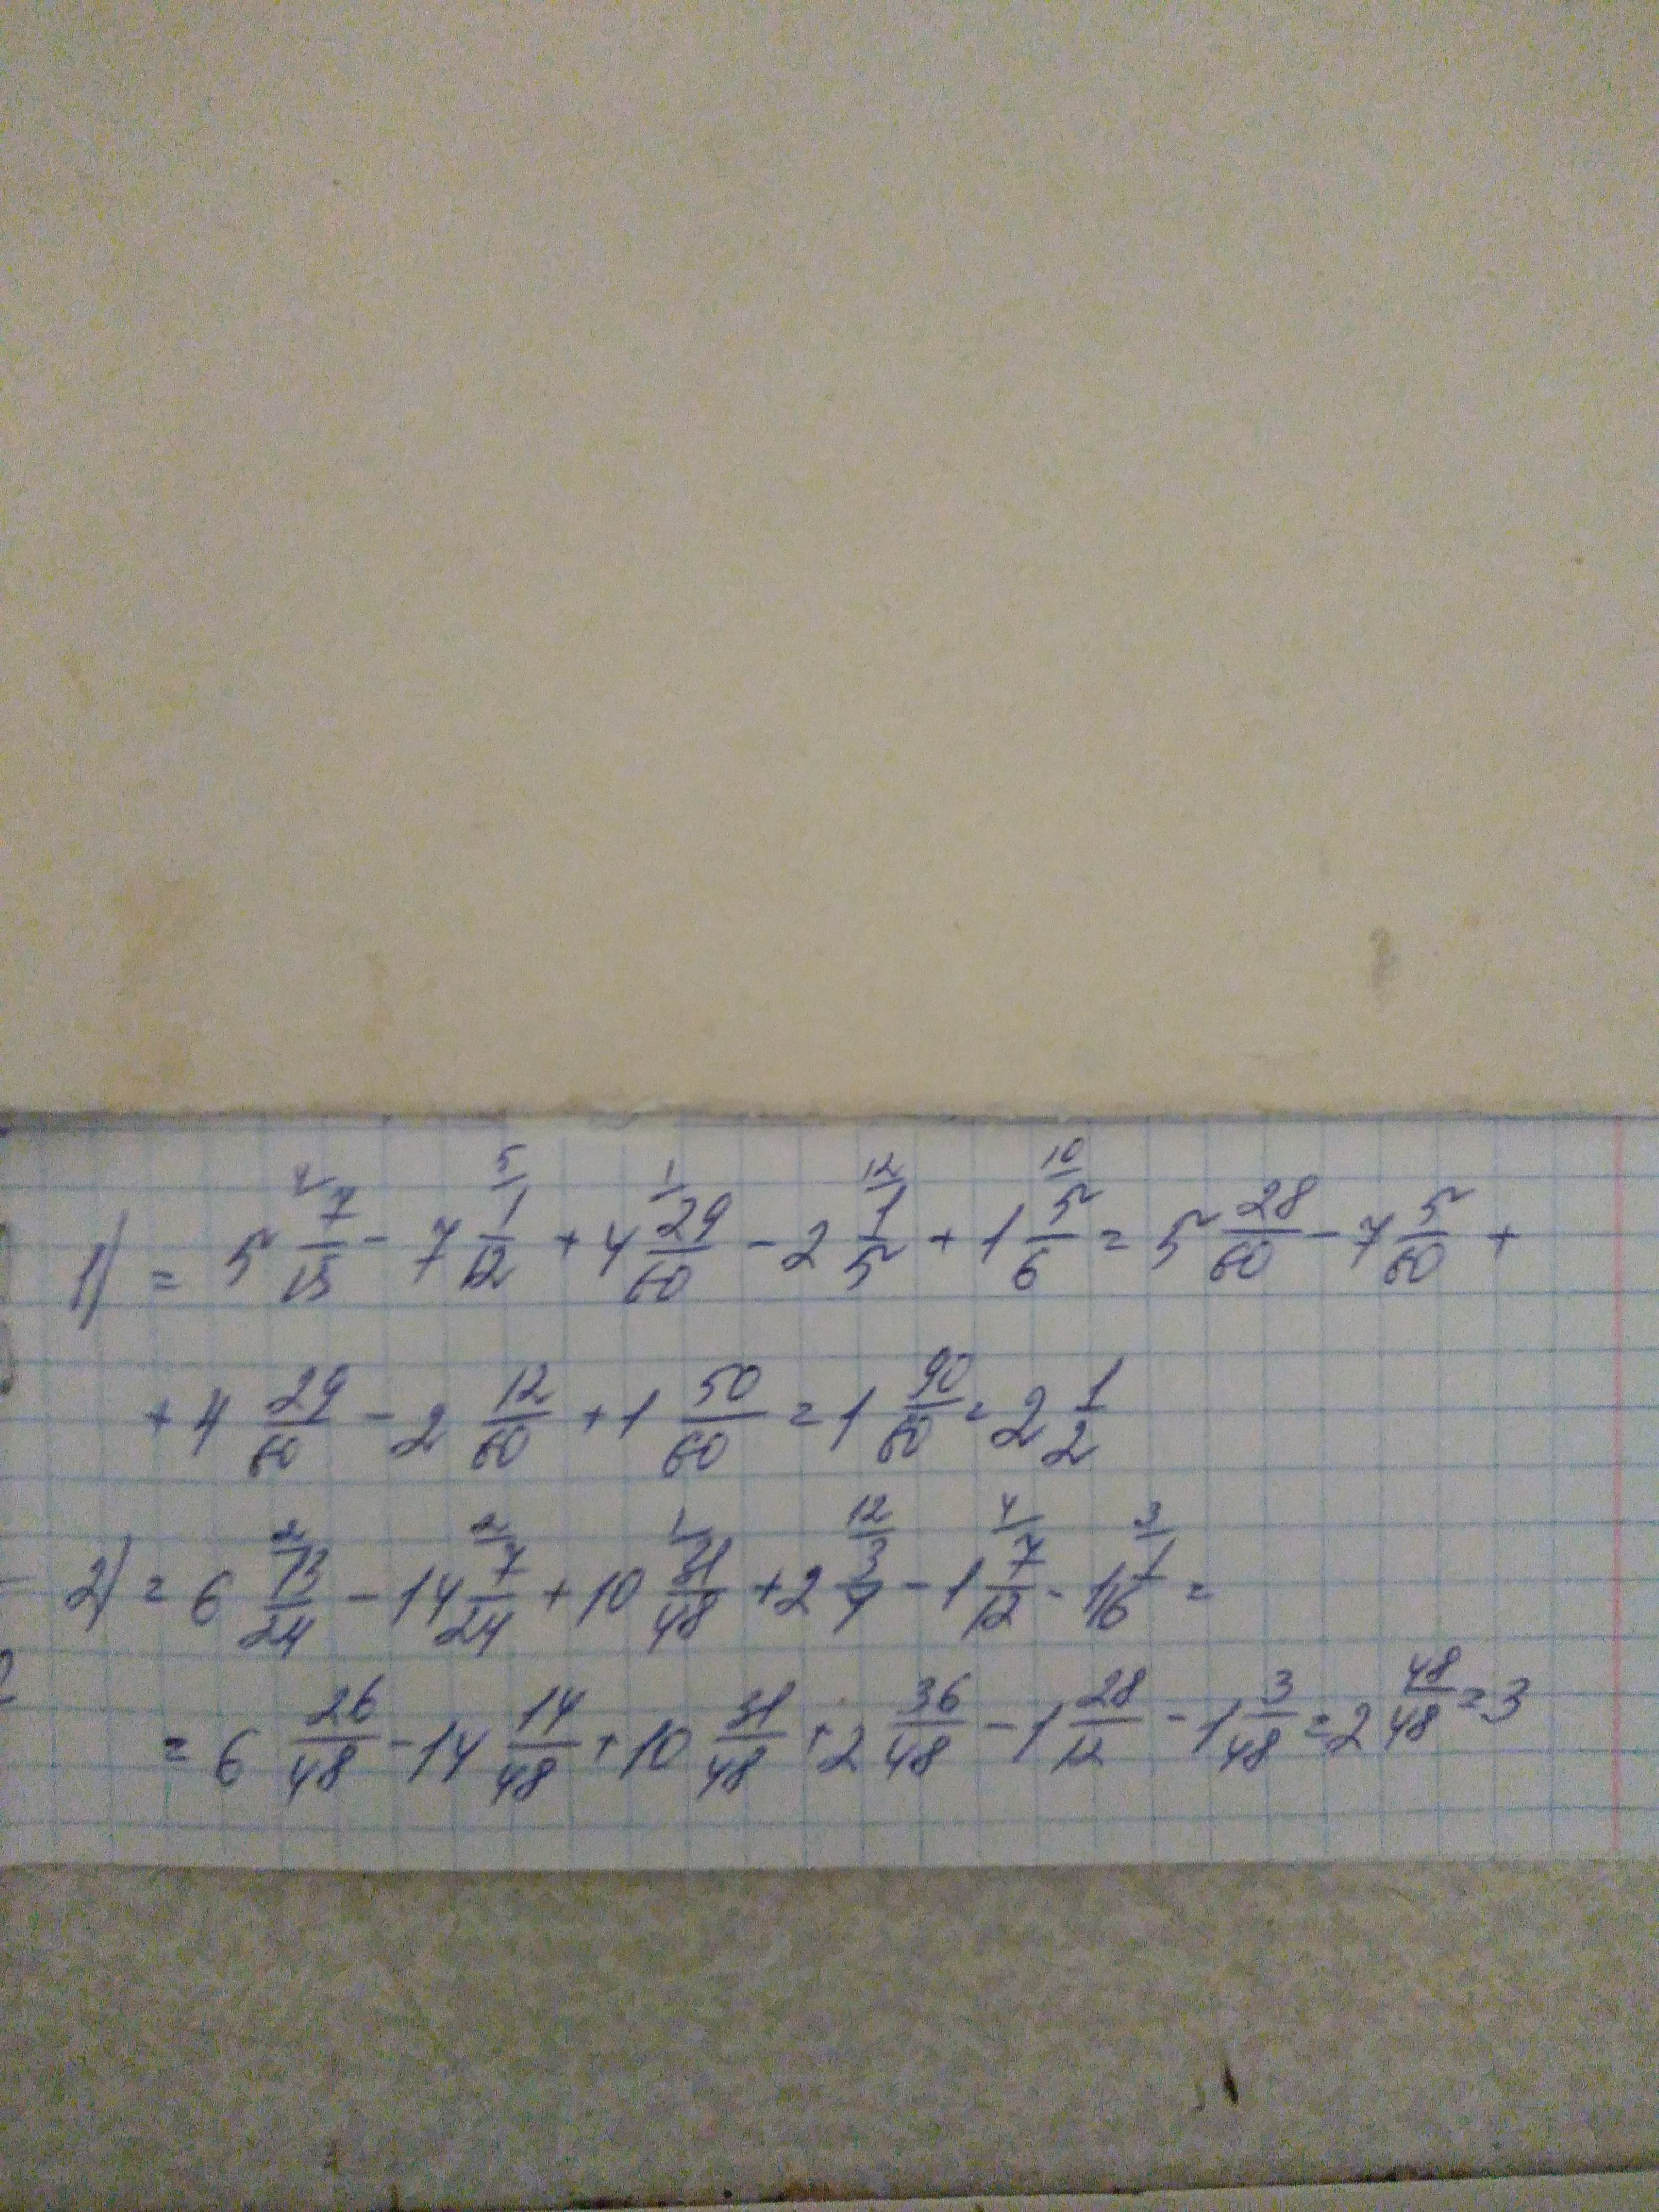 1) = 5 7/15 (4/) - 7 1/12 (5/) + 4 29/60 (1/) - 2 1/5 (12/) + 1 5/6 (10/) = 5 28/60 - 7 5/60 +
+ 4 29/60 - 2 12/60 + 1 50/60 = 1 90/60 = 2 1/2
2) = 6 13/24 (2/) - 14 7/24 (2/) + 10 31/48 (1/) + 2 3/4 (12/) - 1 7/12 (4/) - 1 1/16 (3/) =
= 6 26/48 - 14 14/48 + 10 31/48 + 2 36/48 - 1 28/12 - 1 3/48 = 2 48/48 = 3